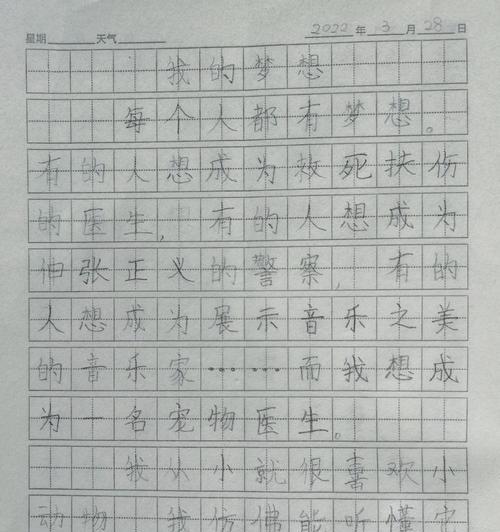 星期 天气 2022年3月28日
我的梦想
每个人都有梦想。
有的人想成为救死扶伤
的医生,有的人想成为
伸张正义的警察,有的
人想成为展示音乐之美
的音乐家……而我想成
为一名宠物医生。
我从小就很喜欢小
动物,我仿佛能听懂它